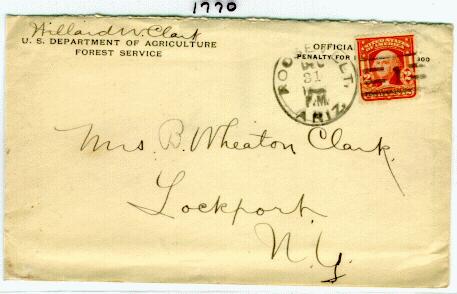 1770
Willard W. Clark
U. S. DEPARTMENT OF AGRICULTURE
FOREST SERVICE
OFFICIA
PENALTY FOR 300
ROOSEVELT,
DEC
31
P.M.
ARIZ.
Mrs. B. Wheaton Clark.
Lockport.
N.Y.